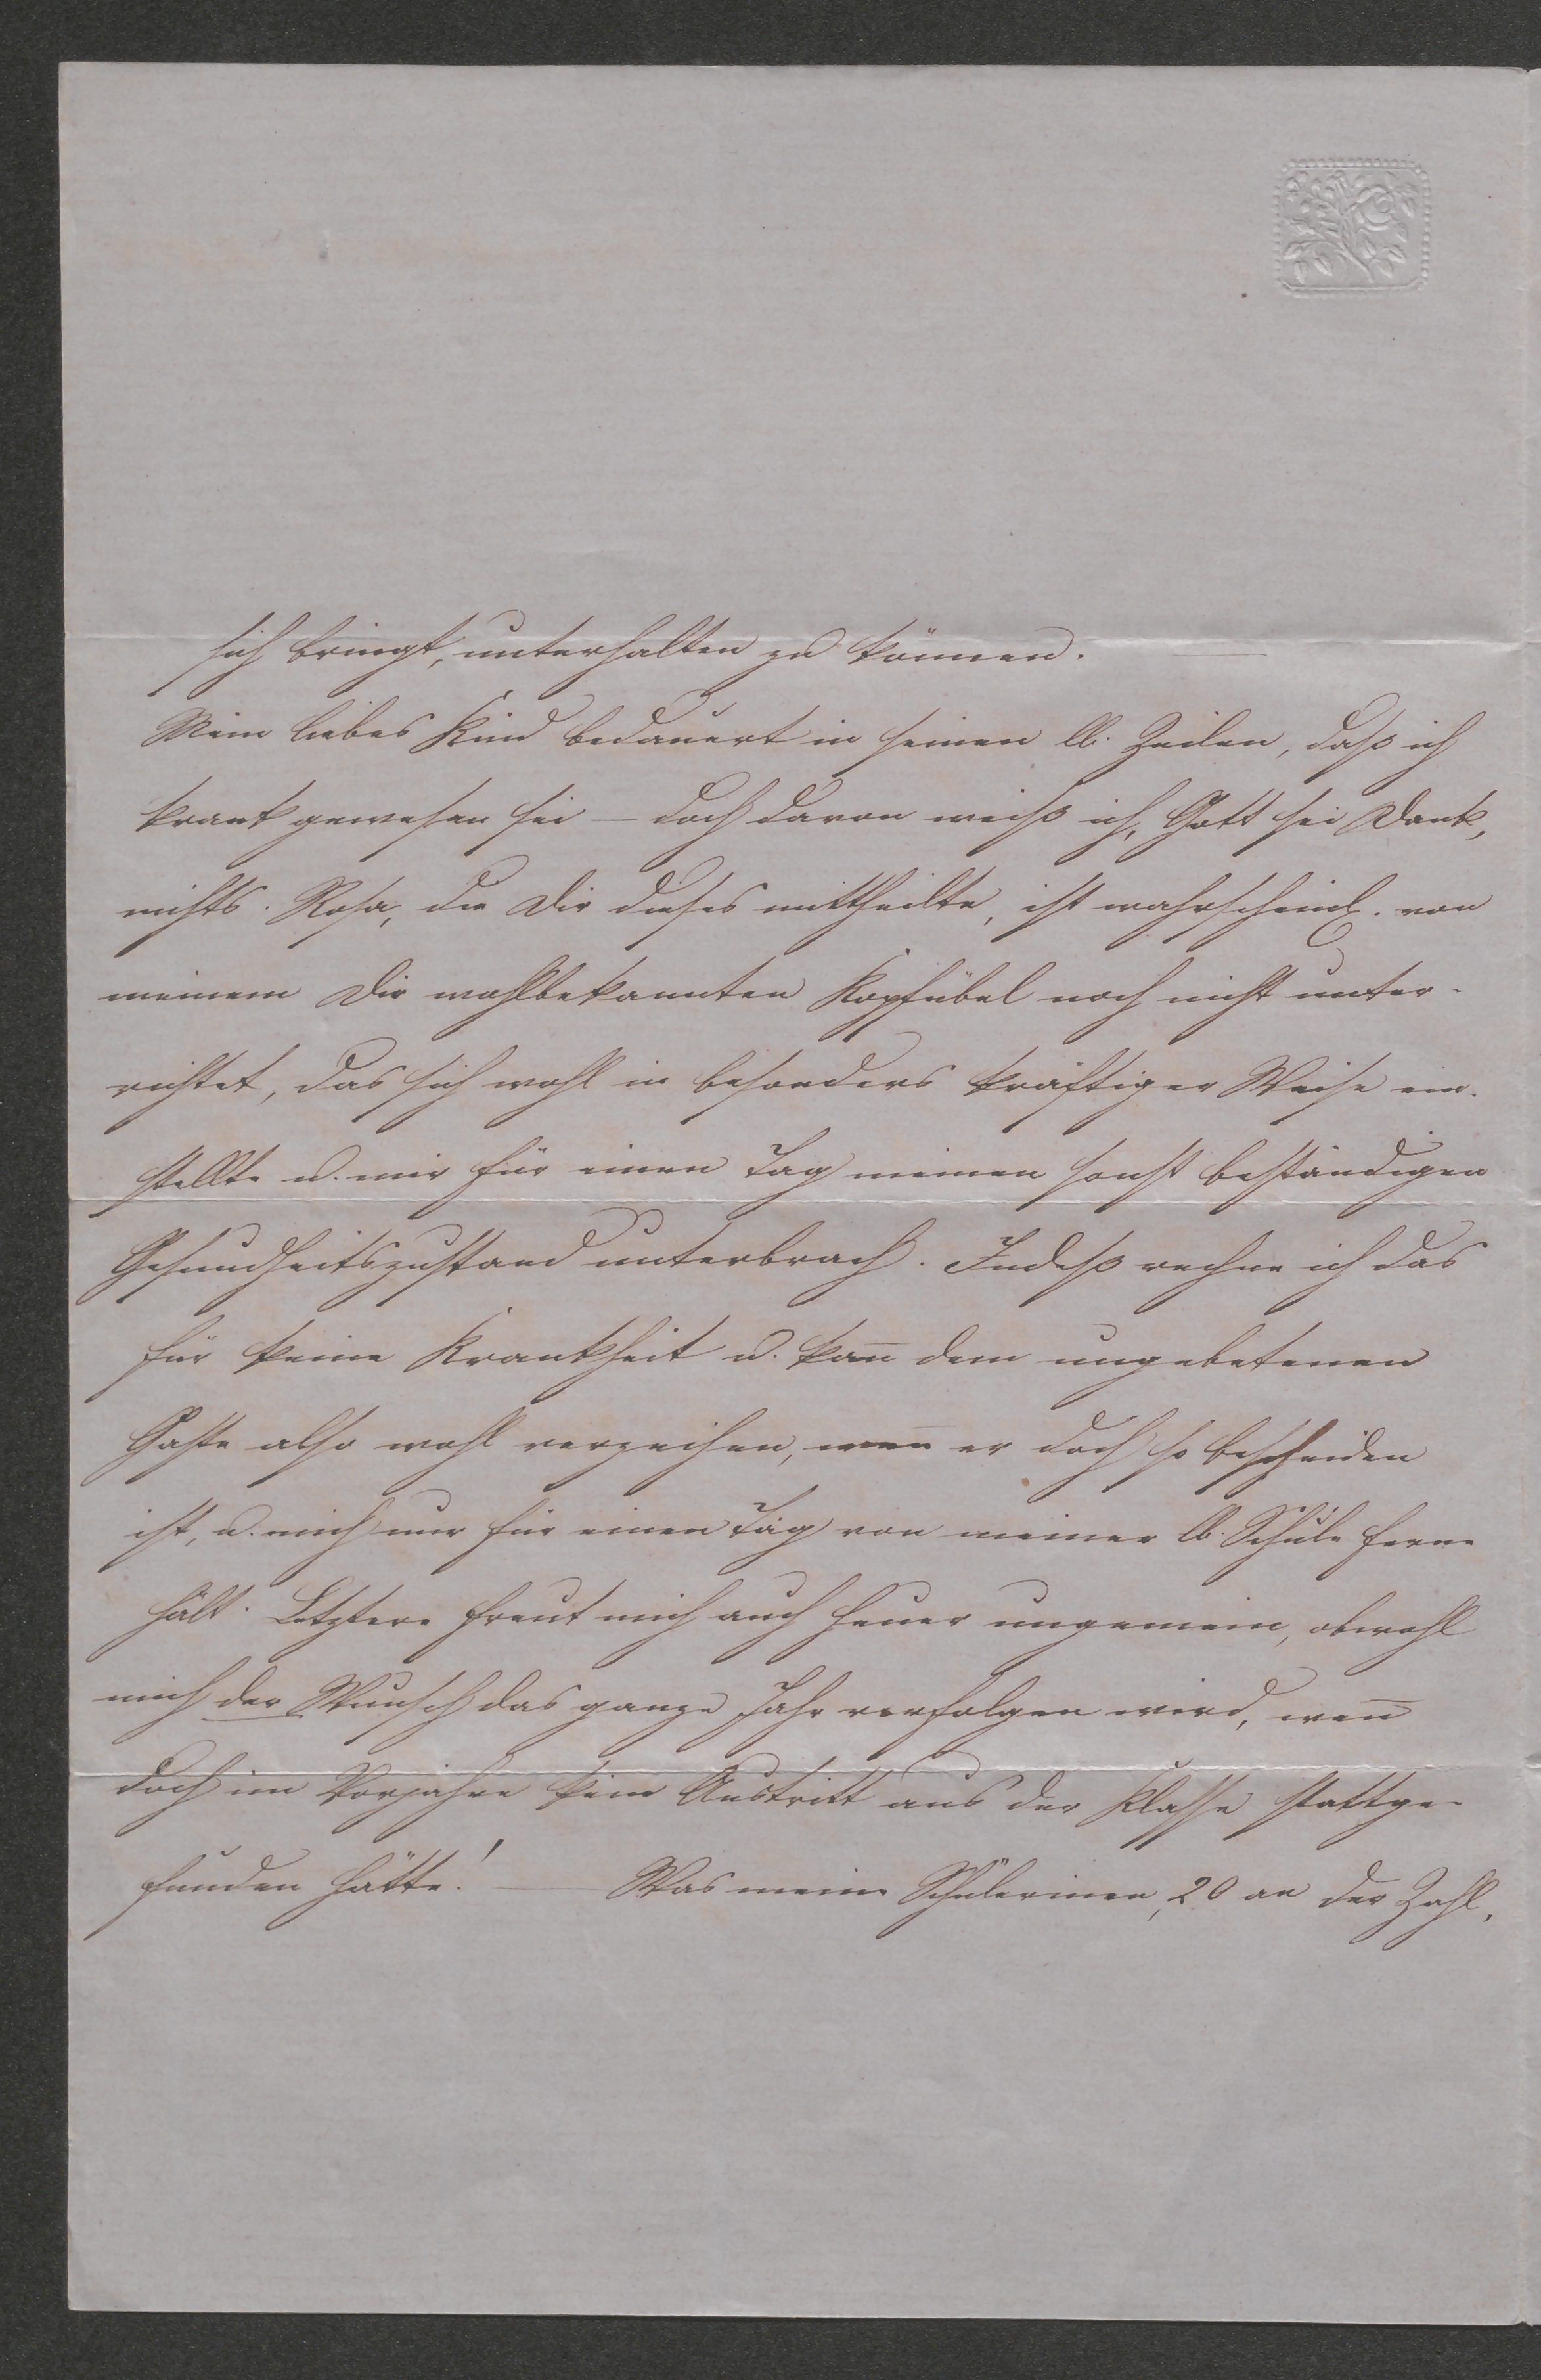 sich bringt, unterhalten zu können. —
Mein liebes Kind bedauert in seinen lb. Zeilen, daß ich
krank gewesen sei — doch davon weiß ich, Gott sei Dank,
nichts. Rosa, die Dir dieses mittheilte, ist wahrscheinl. von
meinem Dir wohlbekannten Kopfübel noch nicht unter-
richtet, das sich wohl in besonders kräftiger Weise ein-
stellte u. mir für einen Tag meinen sonst beständigen
Gesundheitszustand unterbrach. Indeß rechne ich das
für keine Krankheit u. kan̅ dem ungebetenen
Gaste also wohl verzeihen, wen̅ er doch so bescheiden
ist, u. mich nur für einen Tag von meiner lb. Schule ferne
hält. Letztere freut mich auch heuer ungemein, obwohl
mich der Wunsch das ganze Jahr verfolgen wird, wen̅
doch im Vorjahre kein Austritt aus der Klasse stattge-
funden hätte! — Was meine Schülerinen, 20 an der Zahl,